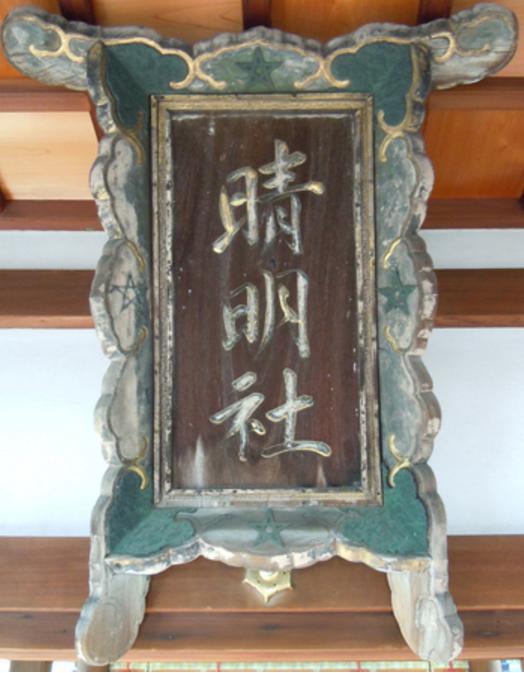 晴明社